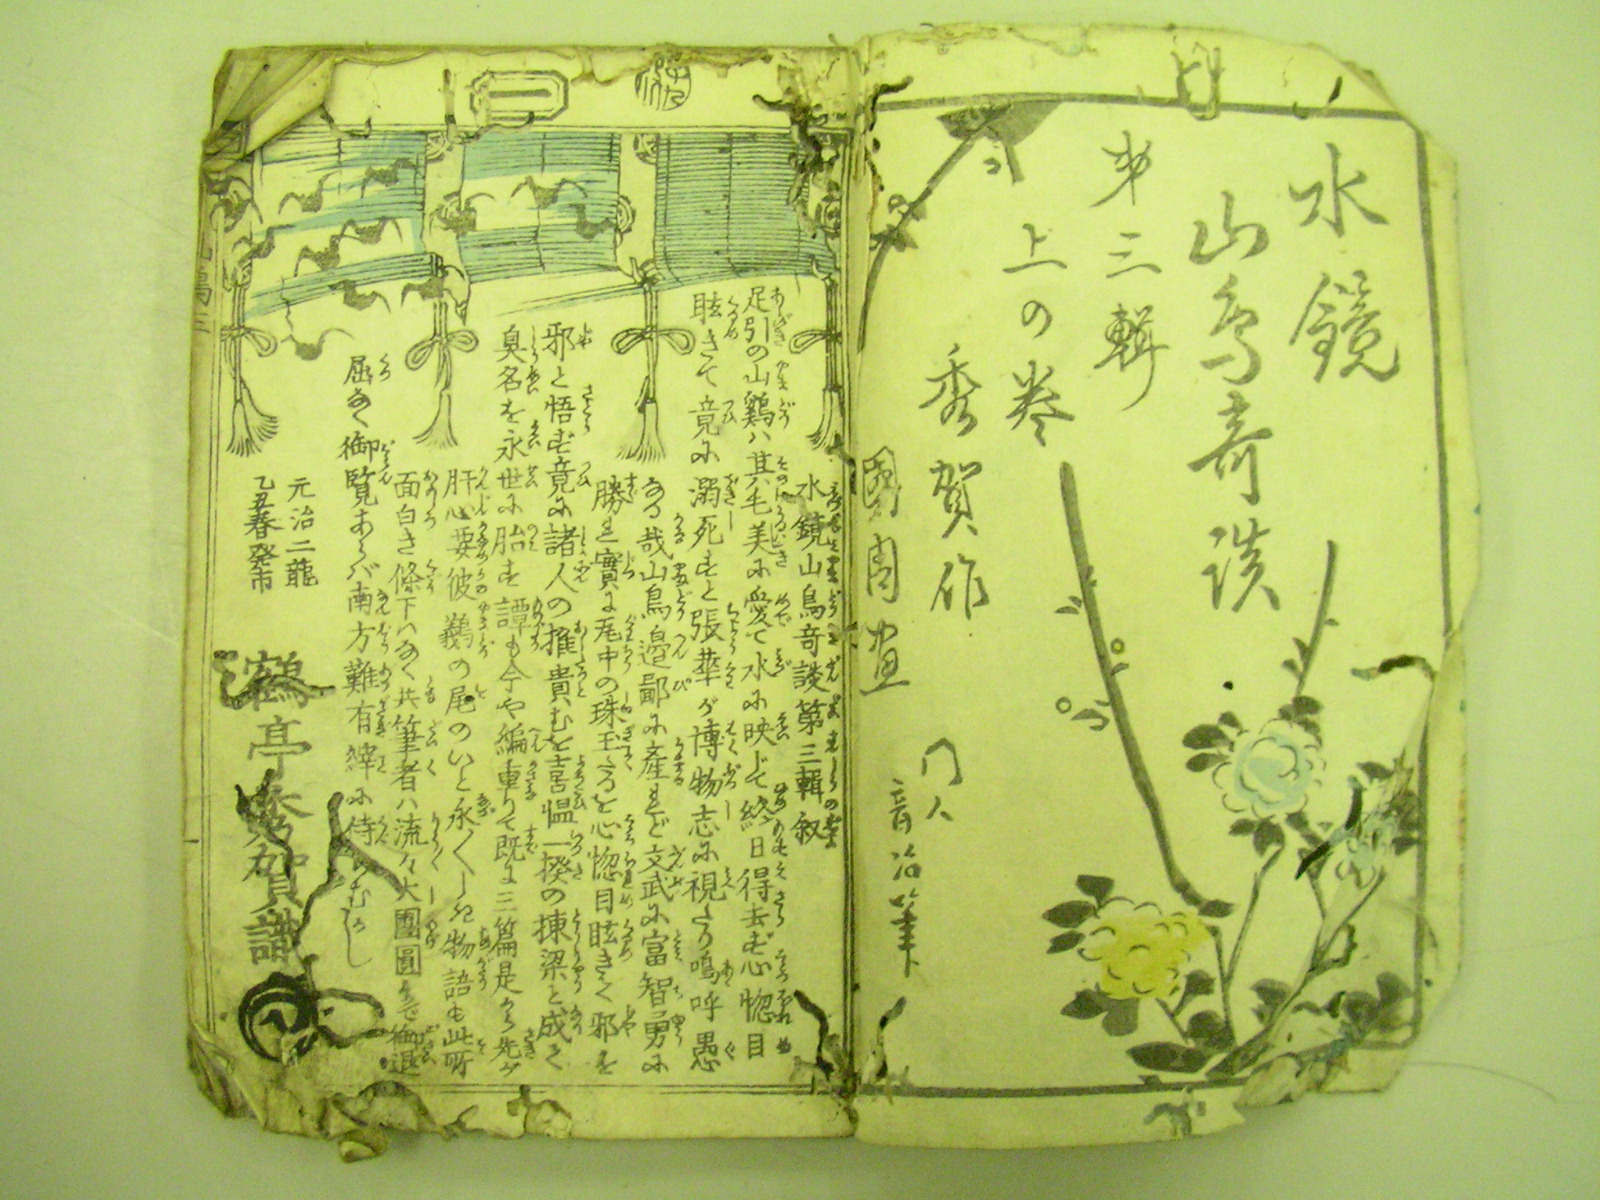 水鏡
山鳥奇談
第三輯
上の巻
秀賀作
國周画
門人
音治筆
水鏡山鳥奇談第三輯叙
足引の山鶏ハ其毛美に愛て水に映じて終日得去ず心惚目
眩きて竟に溺死すと張華が博物志に視たり嗚呼愚
なる哉山鳥邉鄙に産れど文武に富智勇に
勝れ實に
中の珠玉たるを心惚目眩きて邪を
邪と悟ず竟に諸人の推貴むを喜愠一揆の棟梁と成て
臭名を永世に胎す譚も今や編重りて既に三篇是から先が
肝心要彼鷄の尾のいと永〱しき物語も此所
面白き條下ハなく共筆者ハ流々大團圓まで御退
屈なく御覧あらバ南方難有
に侍らむかし
元治二龍
乙丑春発市
鶴亭秀賀識